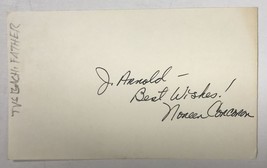 J. Arnold —
Best Wishes!
Noreen Corcoran
TV4 BACH. FATHER